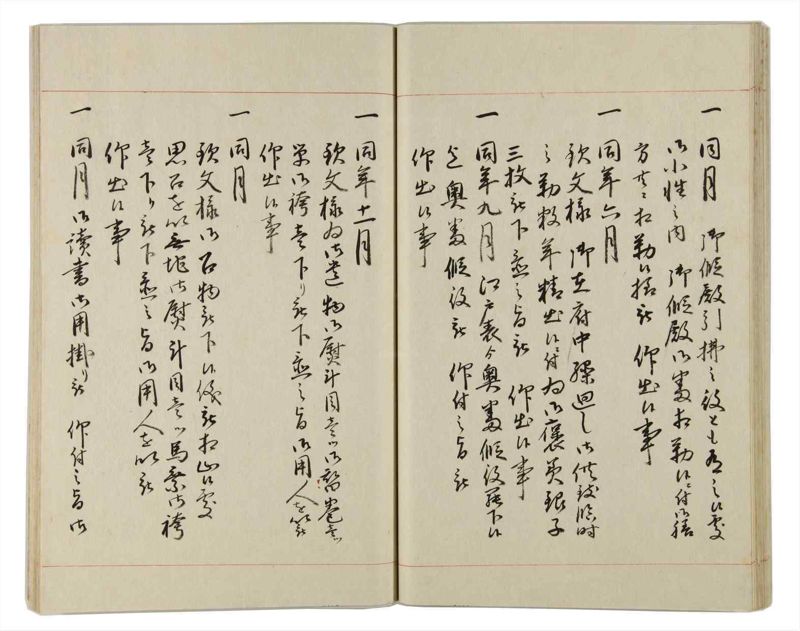 一 同月 御假殿引拂之致とも有之候處
御小性之内 御假殿御番相勤候ニ付御膳
方共ニ相勤候様被 仰出候事
一 同年六月
欽文様 御在府中 御供 臨時
之勤数年精出候ニ付為御褒美銀子
三枚被下置之旨被 仰出候事
一 同年九月 江戸表ゟ奥番假役 下候
迄奥番假役被 仰付之旨被
仰出候事
一 同年十一月
欽文様為御遺物御熨斗目壱ツ御
御袴壱下り被下置之旨御用人を以被
仰出候事
一 同月
欽文様御召物被下候儀被相止候處
思召を以無垢御熨斗目壱ツ馬乗御袴
壱下り被下置之旨御用人を以被
仰出候事
一 同月 御讀書御用掛り被 仰付之旨御